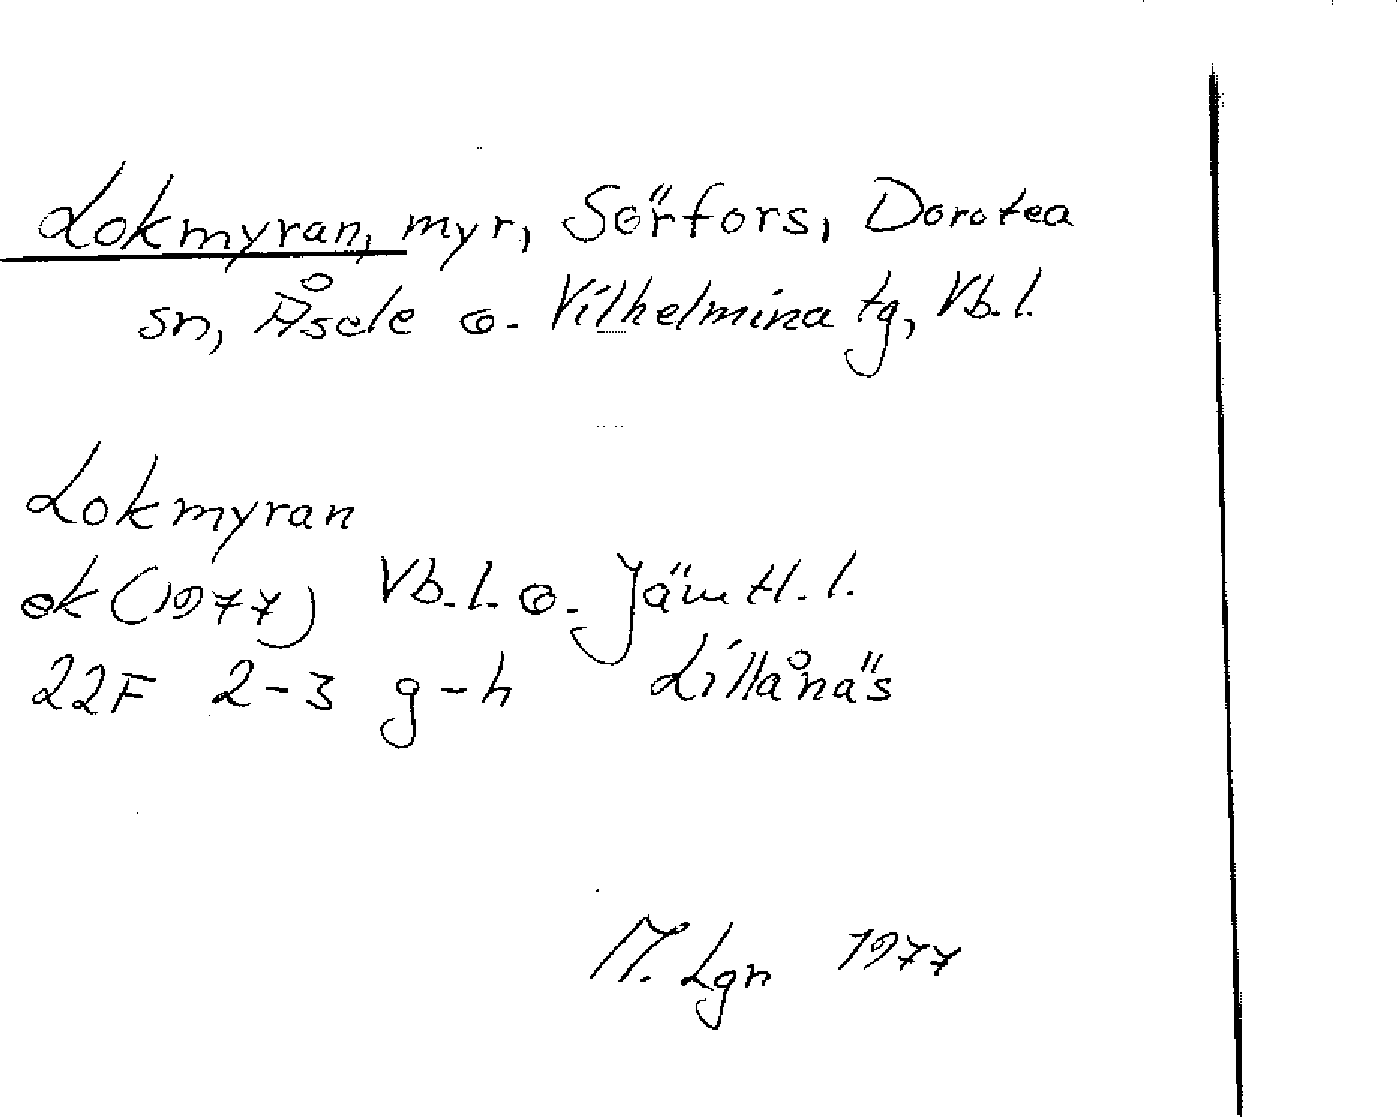 Lokmyran, myr, Sörfors, Dorotea
sn, Åsele o. Vilhelmina tg, Vb.l.
Lokmyran
ek (1977) Vb.l. o. Jämtl.l.
22F 2-3 g-h Lillånäs
M. Lgn 1977